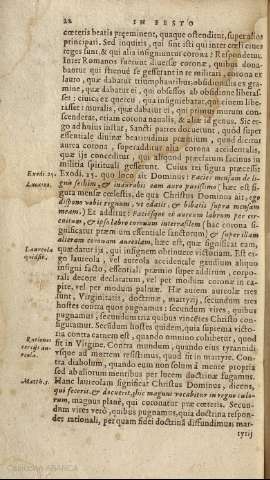 22 IN FESTO
cæteris beatis præeminent, quaque ostenditur, super alios
principari. Sed inquitis, qui sint isti qui inter cæli ciues
reges sunt & qui alia insigniuntur corona? Respondetur.
Inter Romanos fuerunt diuersæ coronæ, quibus dona-
bantur qui strenuè se gesserant in re militari, corona ex
lauro, quæ dabatur triumphantibus: obsidionalis ex gra-
mine, quæ dabatur ei, qui obsessos ab obsidione liberas-
set: ciuica ex quercu, qua insigniebatur, qui ciuem libe-
rasset: muralis, quæ dabatur ei, qui primus murum con-
scenderat, etiam corona naualis, & aliæ id genus. Sic er-
go ad huius instar, Sancti patres docuerunt, quod super
essentiale diuinæ beatitudinis præmium, quod dicitur
aurea corona, superadditur alia corona accidentalis,
quæ ijs conceditur, qui aliquod præclarum facinus in
militia spirituali gesserunt. Cuius rei figura præcessit
Exodi. 25. Exod. 25. quo loco ait Dominus Facies mensam de li-
gnis sethim, & inaurabis eam auro purissimo (hæc est fi-
gura mensæ cœlestis, de qua Christus Dominus ait, ego
dispono vobis regnum, vt edatis, & bibatis super mensam
meam.) Et additur: Faciesque ei aureum labrum per cir-
cuitum, & ipsi labro coronam interrasilem (hæc corona si-
gnificat præmium essentiale sanctorum) & super illam
alteram coronam aureolam, hæc est, quæ significat eam,
Laureola quæ datur ijs, qui insignem obtinuere victoriam. Est er-
quid sit. go laureola, vel aureola accidentale gaudium aliquo
insigni facto, essentiali præmio super additum, corpo-
rali decore declaratum, vel per modum coronæ in ca-
pite, vel per modum palmæ. Hæ autem aureolæ tres
sunt, Virginitatis, doctrinæ, martyrij, secundum tres
hostes contra quos pugnamus: secundum vires, quibus
pugnamus; secundum tria quibus vincētes Christo con-
iungamur. Secundum hostes quidem, quia suprema victo-
ria contra carnem est, quando omnino cohibetur, quod
sit in Virgine. Contra mundum, quando eius tyrannidi
vsque ad mortem resistimus, quod sit in martyre. Con-
tra diabolum, quando eum non solum à mente propria
sed ab aliorum mentibus per lucem doctrinæ fugamus.
Matth. 5. Hanc laureolam significat Christus Dominus, dicens,
qui fecerit, & docuerit, hic magnus vocabitur in regno cælo-
rum, magnus planè, qui coronatur præ cæteris. Secun-
dum vires verò, quibus pugnamus, quia doctrina respon-
det rationali, per quam fidei doctrinā diffundimus: mar-
tyrij